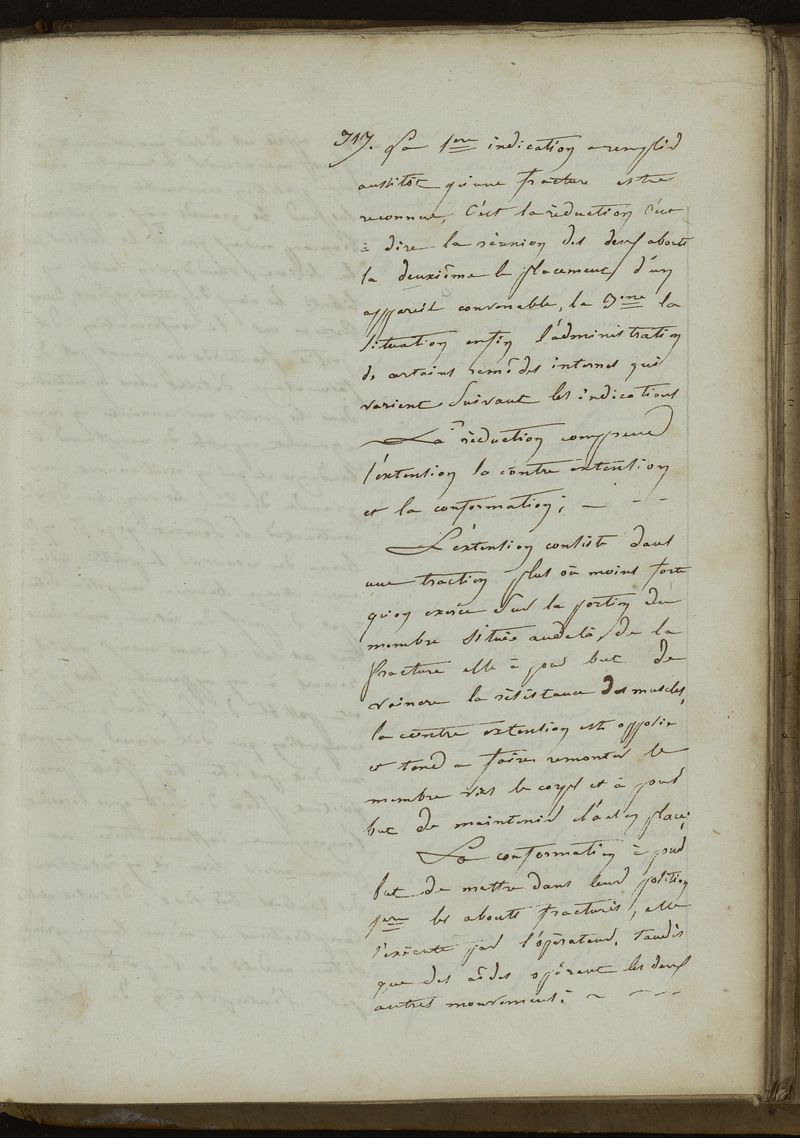 317. La 1ere indication a remplir
aussitôt qu'une fracture est
reconnue, C'est la réduction C'est
à dire la réunion des deux abouts
la deuxième le placement d'un
appareil convenable, la 3eme la
Situation enfin l'administration
de certains remèdes internes qui
varient Suivant les indications
La réduction comprend
l'extention la contre extention
et la conformation; —
L'extension consiste dans
une traction plus où moins forte
qu'on exerce Sur la portion du
membre Située audelà de la
fracture elle à pour but de
vaincre la résistance des muscles,
la contre extention est opposée
et tend a faire remonter le
membre vers le corps et à pour
but de maintenir place;
La conformation à pour
but de mettre dans leur position
1ere les abouts fracturés, elle
s'exécute par l'opérateur, tandis
que des aides opèrent les deux
autres mouvements; ~